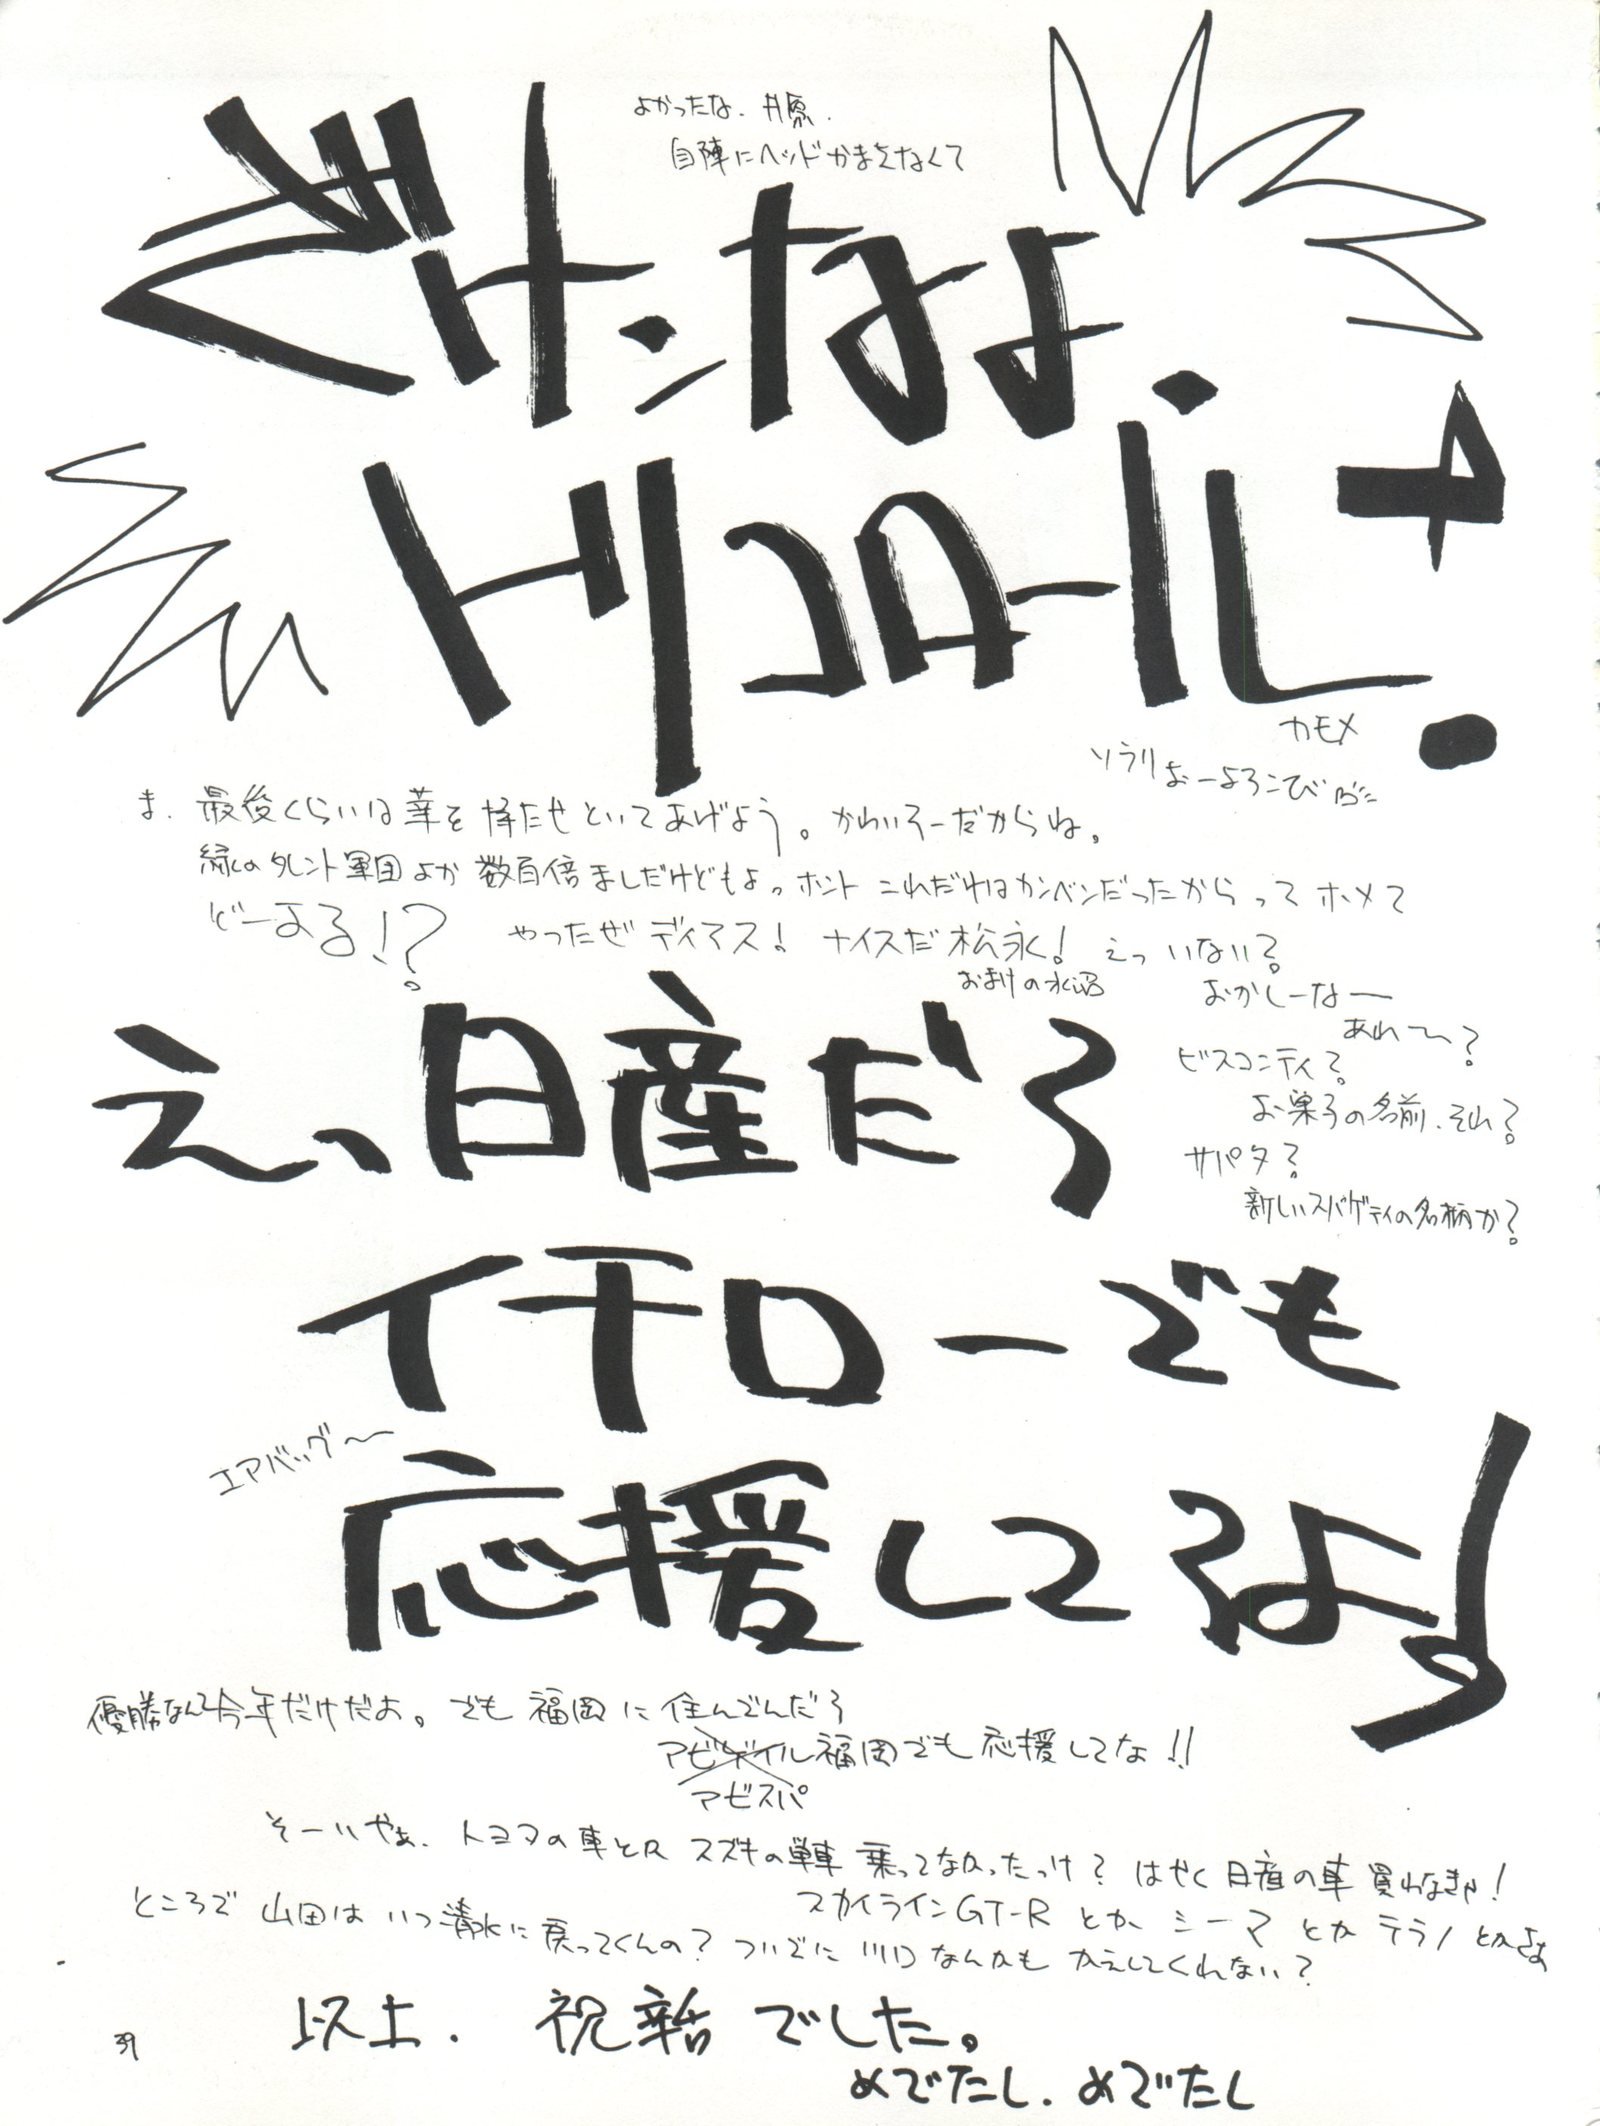 よかったな、井原.
自陣にヘッドかまえなくて
ざけンなよ、
トリコロール!
カモメ
ソラリ
おーよろこび
ま、最後くらいは華を持たせといてあげよう。かわいそーだからね。
緑のタレント軍団よか数百倍ましだけどもよっホント これだけはカンベンだったからってホメて
どーする!?
やったぜディアス! ナイスだ松永! えっいない?
おまけの水沼
おかしーなー
あれ〜?
ビスコンティ?
お菓子の名前、それ?
サパタ?
新しいスパゲティの名柄か?
えっ、日産だろ
イチローでも
エアバッグ〜
応援してろよ!
優勝なんて今年だけだよ。でも福岡に住んでんだろ
福岡でも応援してな!!
アビスパ
そーいやぁ、トヨタの車とR スズキの単車 乗ってなかったっけ? はやく日産の車買わなきゃ!
スカイラインGT-R とか シーマ とか テラノ とかさぁ
ところで 山田は いつ清水に戻ってくんの? ついでに 川口なんかも かえしてくれない?
以上. 祝辞でした。
めでたし、めでたし
39